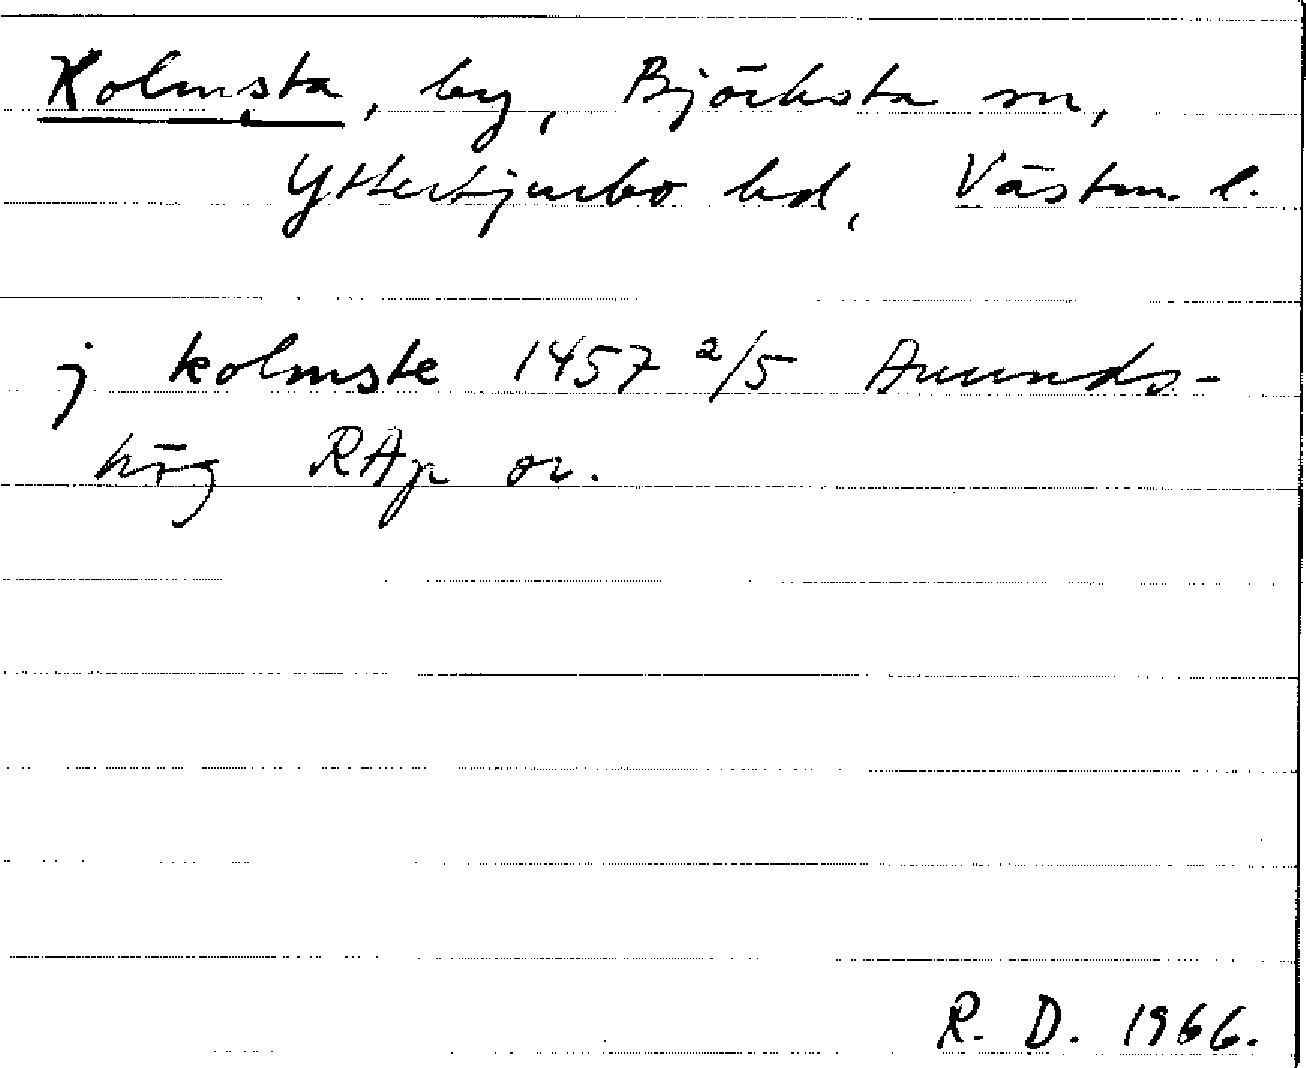 Kolmsta, by, Björksta sn,
Yttertjurbo hd, Västm. l.
j kolmste 1457 2/5 Anunds-
hög RAp or.
R. D. 1966.